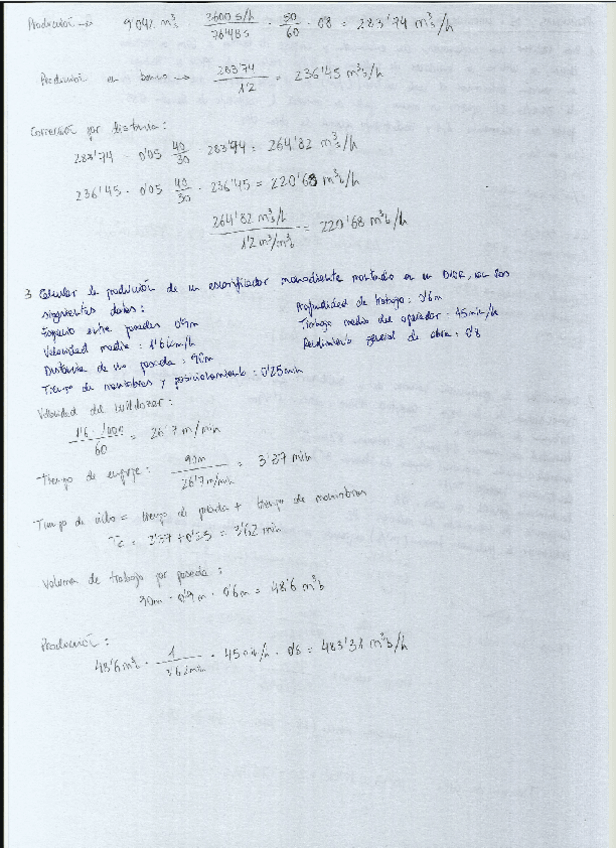 Producción → 9'042 m³s 3600 s/h / 76'48s · 50/60 · 0'8 = 283'74 m³s/h
Producción en banco → 283'74 / 1'2 = 236'45 m³b/h
Corrección por distancia:
283'74 · 0'05 40/30 · 283'74 = 264'82 m³s/h
236'45 · 0'05 40/30 · 236'45 = 220'68 m³b/h
264'82 m³s/h / 1'2 m³/m³b = 220'68 m³b/h
3 Calcular la producción de un escarificador monodiente montado en un con los
siguientes datos:
Espacio entre pasadas 0'9m
Velocidad media: 1'6 km/h
Distancia de una pasada: 90m
Tiempo de maniobras y posicionamiento: 0'25min
Profundidad de trabajo: 0'6m
Trabajo medio del operador: 45min/h
Rendimiento general de obra: 0'8
Velocidad del bulldozer:
1'6 · 1000 / 60 = 26'7 m/min
Tiempo de empuje: 90m / 26'7m/min = 3'37 min
Tiempo de ciclo = tiempo de pasada + tiempo de maniobras
Tc = 3'37 + 0'25 = 3'62 min
Volumen de trabajo por pasada:
90m · 0'9m · 0'6m = 48'6 m³b
Producción:
48'6m³b · 1 / 3'62min · 45min/h · 0'8 = 483'31 m³b/h